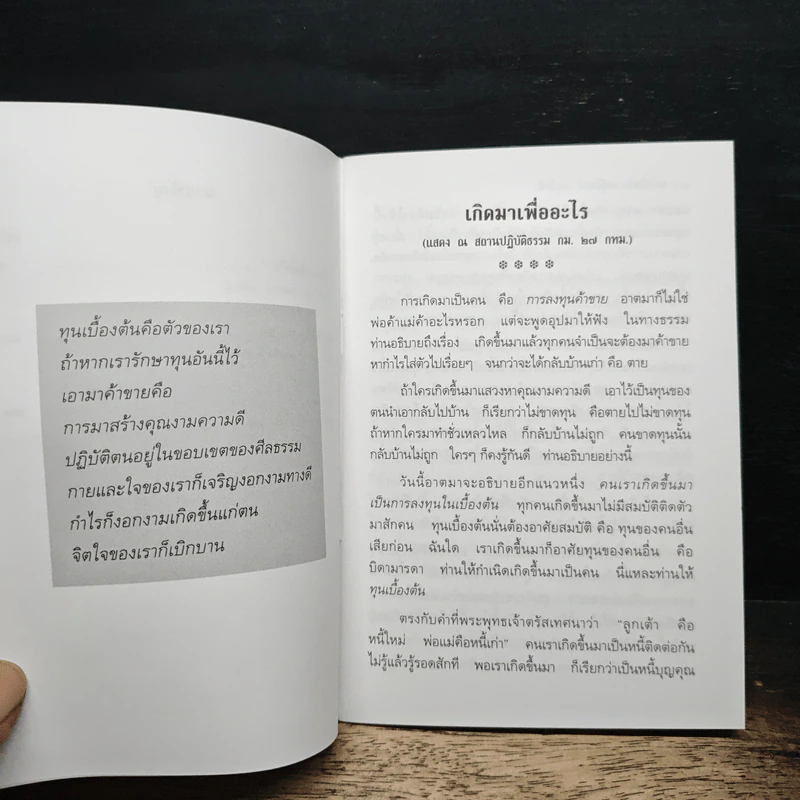 ทุนเบื้องต้นคือตัวของเรา
ถ้าหากเรารักษาทุนอันนี้ไว้
เอามาค้าขายคือ
การมาสร้างคุณงามความดี
ปฏิบัติตนอยู่ในขอบเขตของศีลธรรม
กายและใจของเราก็เจริญงอกงามทางดี
กำไรก็งอกงามเกิดขึ้นแก่ตน
จิตใจของเราก็เบิกบาน
เกิดมาเพื่ออะไร
(แสดง ณ สถานปฏิบัติธรรม กม. ๒๗ กทม.)
การเกิดมาเป็นคน คือ การลงทุนค้าขาย อาตมาก็ไม่ใช่
พ่อค้าแม่ค้าอะไรหรอก แต่จะพูดอุปมาให้ฟัง ในทางธรรม
ท่านอธิบายถึงเรื่อง เกิดขึ้นมาแล้วทุกคนจำเป็นจะต้องมาค้าขาย
หากำไรใส่ตัวไปเรื่อยๆ จนกว่าจะได้กลับบ้านเก่า คือ ตาย
ถ้าใครเกิดขึ้นมาแสวงหาคุณงามความดี เอาไว้เป็นทุนของ
ตนนำเอากลับไปบ้าน ก็เรียกว่าไม่ขาดทุน คือตายไปไม่ขาดทุน
ถ้าหากใครมาทำชั่วเหลวไหล ก็กลับบ้านไม่ถูก คนขาดทุนนั้น
กลับบ้านไม่ถูก ใครๆ ก็คงรู้กันดี ท่านอธิบายอย่างนี้
วันนี้อาตมาจะอธิบายอีกแนวหนึ่ง คนเราเกิดขึ้นมา
เป็นการลงทุนในเบื้องต้น ทุกคนเกิดขึ้นมาไม่มีสมบัติติดตัว
มาสักคน ทุนเบื้องต้นนั่นต้องอาศัยสมบัติ คือ ทุนของคนอื่น
เสียก่อน ฉันใด เราเกิดขึ้นมาก็อาศัยทุนของคนอื่น คือ
บิดามารดา ท่านให้กำเนิดเกิดขึ้นมาเป็นคน นี่แหละท่านให้
ทุนเบื้องต้น
ตรงกับคำที่พระพุทธเจ้าตรัสเทศนาว่า "ลูกเต้า คือ
หนี้ใหม่ พ่อแม่คือหนี้เก่า" คนเราเกิดขึ้นมาเป็นหนี้ติดต่อกัน
ไม่รู้แล้วรู้รอดสักที พอเราเกิดขึ้นมา ก็เรียกว่าเป็นหนี้บุญคุณ